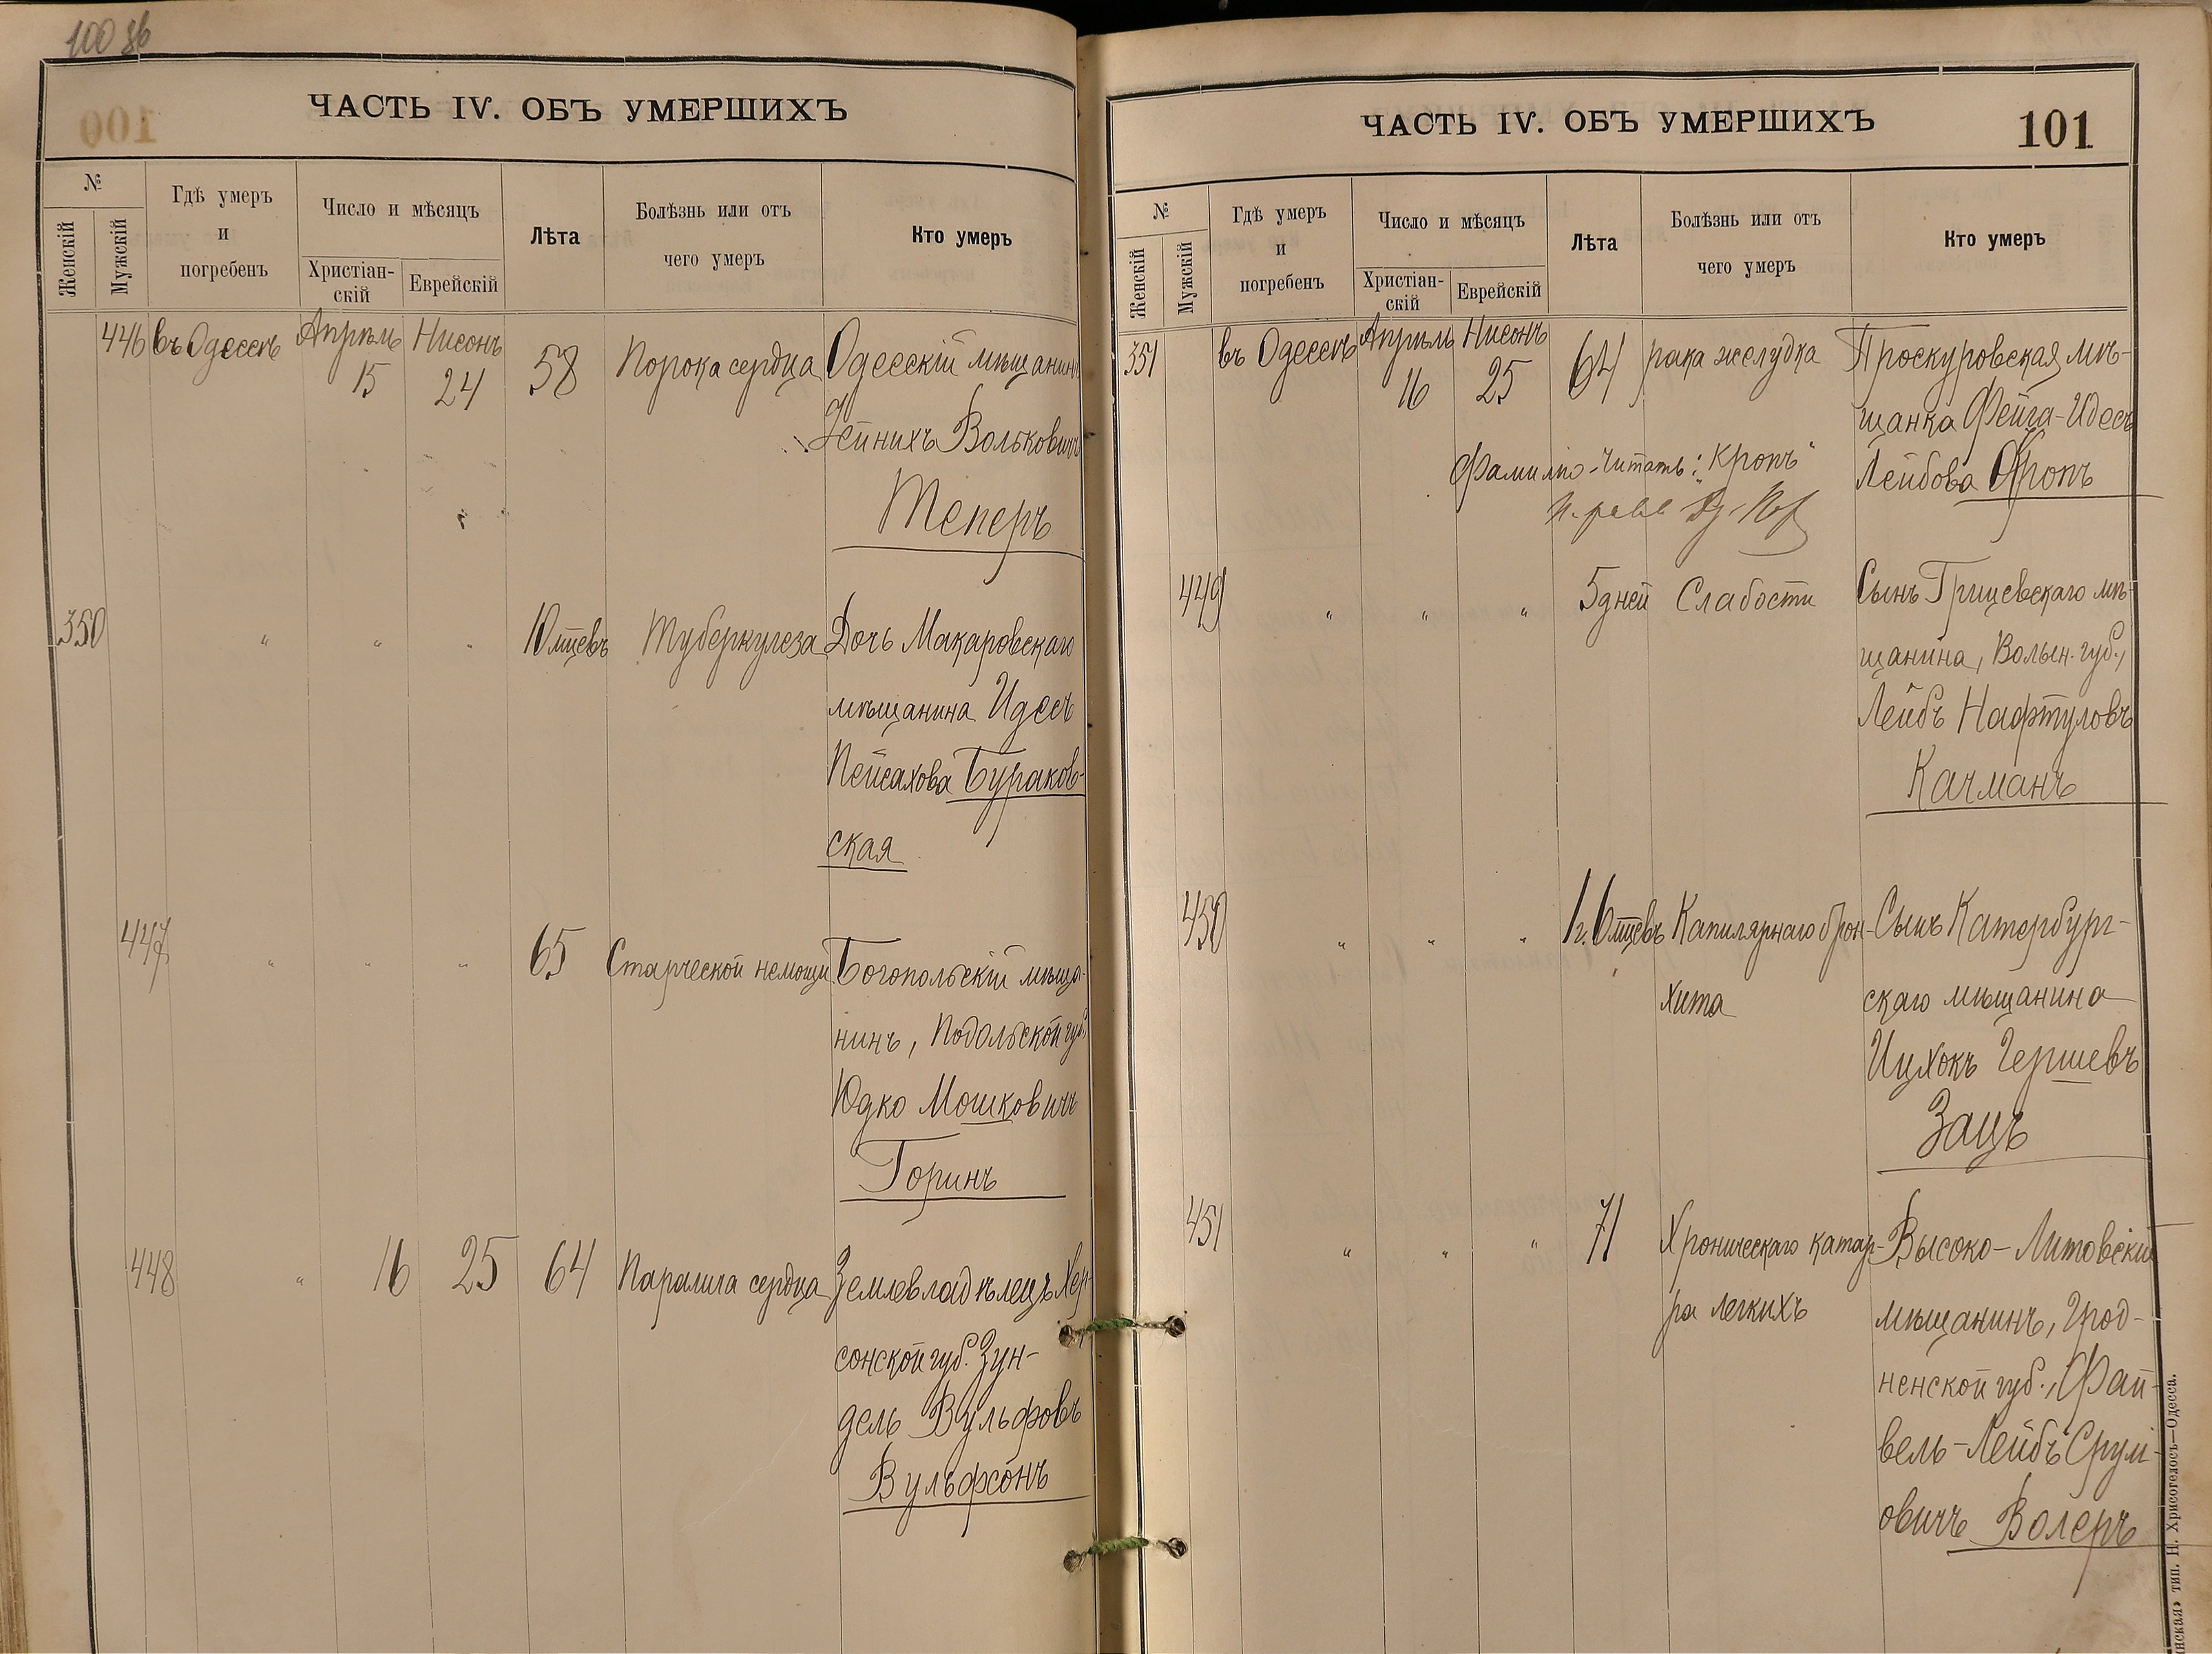 100 об
ЧАСТЬ IV. ОБЪ УМЕРШИХЪ
№
Женскій
Мужскій
Гдѣ умеръ
и
погребенъ
Число и мѣсяцъ
Христіан-
скій
Еврейскій
Лѣта
Болѣзнь или отъ
чего умеръ
Кто умеръ
446 въ Одессѣ Апрѣль 15 Нисонъ 24 58 Порока сердца Одесскій мѣщанинъ
Гейнихъ Вольковичъ
Теперъ
350 " " " 10 мцевъ Туберкулеза Дочь Макаровскаго
мѣщанина Идесъ
Пейсахова Бураков-
ская
447 " " " 65 Старческой немощи Богопольскій мѣща-
нинъ, Подольской губ.
Юдко Мошковичъ
Горинъ
448 " 16 25 64 Паралича сердца Землевладѣлецъ Хер-
сонской губ. Зун-
дель Вульфовъ
Вульфсонъ
ЧАСТЬ IV. ОБЪ УМЕРШИХЪ
101
№
Женскій
Мужскій
Гдѣ умеръ
и
погребенъ
Число и мѣсяцъ
Христіан-
скій
Еврейскій
Лѣта
Болѣзнь или отъ
чего умеръ
Кто умеръ
351 въ Одессѣ Апрѣль 16 Нисонъ 25 64 рака желудка Проскуровская мѣ-
щанка Фейга-Идесъ
Лейбова Кропъ
Фамилію читать: "Кропъ"
449 " " " 5 дней Слабости Сынъ Грицевскаго мѣ-
щанина, Волын. губ.,
Лейбъ Нафтуловъ
Качманъ
450 " " " 1 г. 6 мцевъ Капилярнаго брон- Сынъ Катербург-
хита скаго мѣщанина
Ицхокъ Гершевъ
Зацъ
451 " " " 71 Хроническаго катар- Высоко-Литовскій
ра легкихъ мѣщанинъ, Грод-
ненской губ., Фай-
вель-Лейбъ Срул-
овичъ Волеръ
тип. Н. Хрисогелосъ—Одесса.